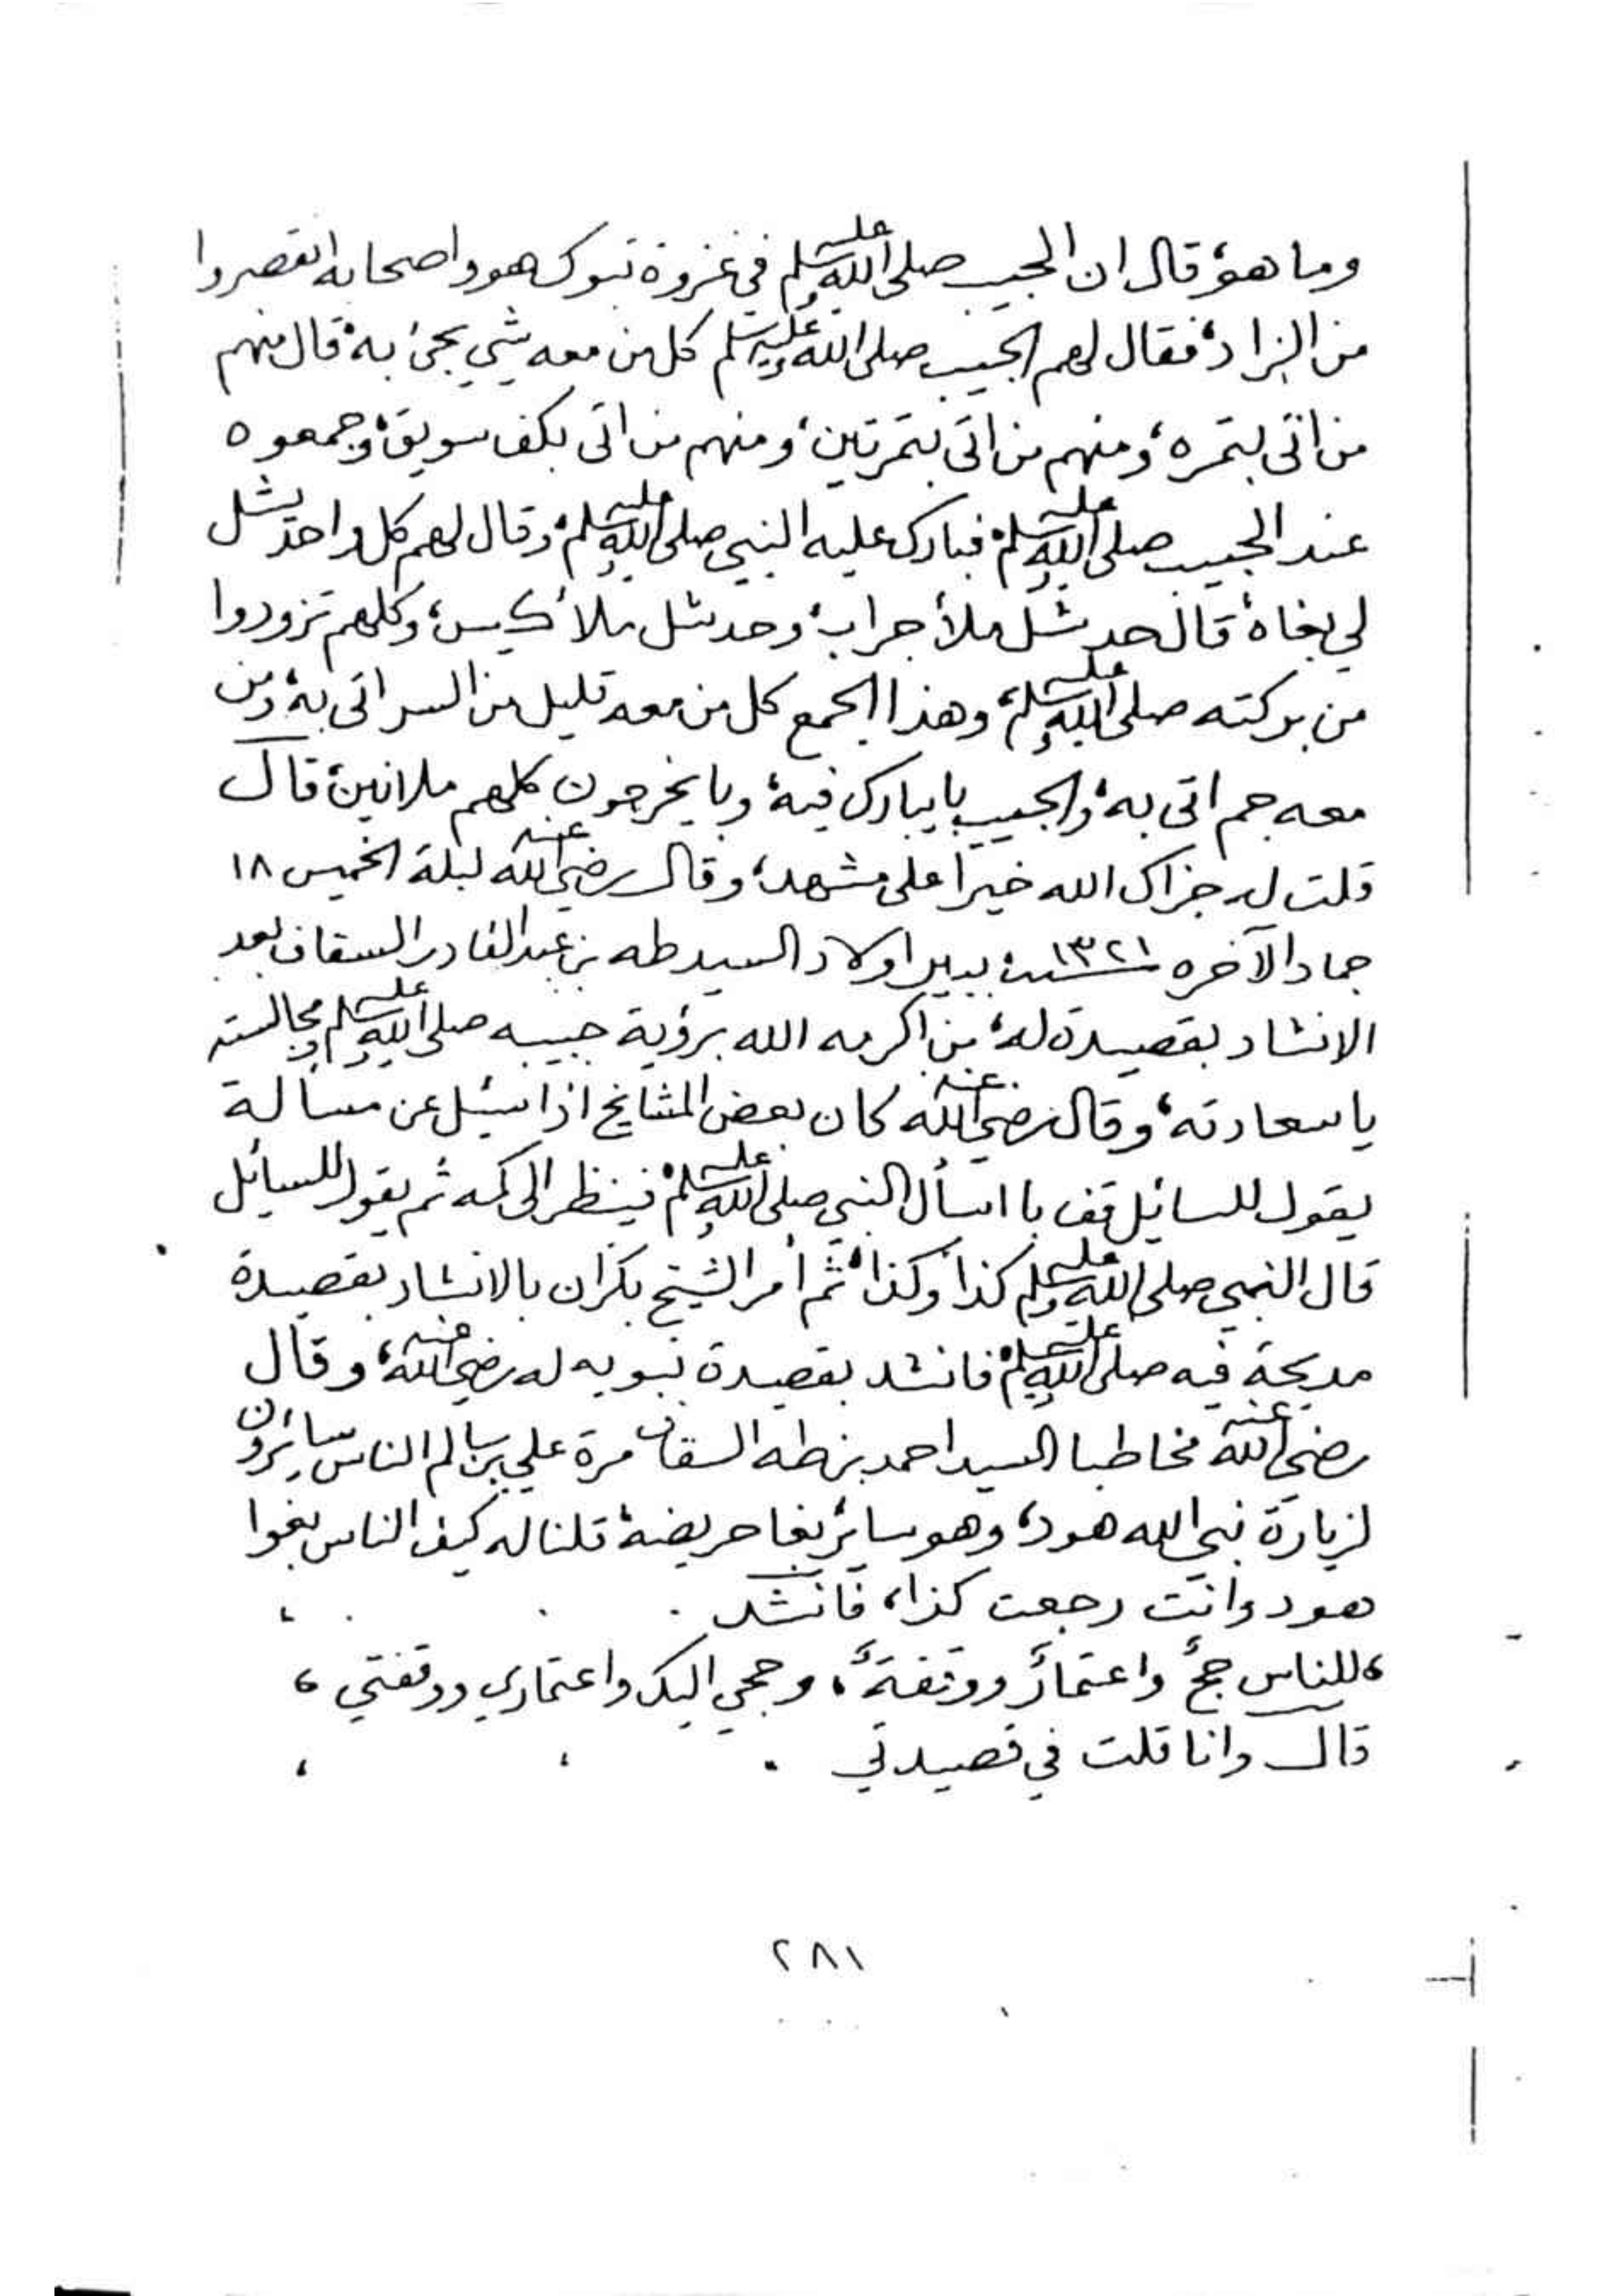 وما هو، قال ان الحبيب صلى الله عليه وسلم في غزوة تبوك هو واصحابه انقصروا
من الزاد، فقال لهم الحبيب صلى الله عليه وسلم كل من معه شي يجئ به، قال منهم
من اتى بتمره، ومنهم من اتى بتمرتين، ومنهم من اتى بكف سويق، وجمعوه
عند الحبيب صلى الله عليه وسلم، فبارك عليه النبي صلى الله عليه وسلم، وقال لهم كل واحد يشل
لي بغاه، قال حد شل ملأ جراب، وحد شل ملأ كيس، وكلهم تزودوا
من بركته صلى الله عليه وسلم، وهذا الجمع كل من معه قليل من السر اتى به، ومن
معه جم اتى به، والحبيب بايبارك فيه، وبايخرجون كلهم ملانين، قال
قلت له جزاك الله خيرا على مشهد، وقال رضي الله عنه ليلة الخميس ١٨
جماد الآخره سنة ١٣٢١ ببير اولاد السيد طه بن عبد القادر السقاف بعد
الانشاد بقصيدة له، من اكرمه الله برؤية حبيبه صلى الله عليه وسلم ومجالسته
ياسعادته، وقال رضي الله عنه كان بعض المشايخ اذا سئل عن مسألة
يقول للسائل قف با اسأل النبي صلى الله عليه وسلم، فينظر الى كمه ثم يقول للسائل
قال النبي صلى الله عليه وسلم كذا وكذا، ثم أمر الشيخ بكران بالانشاد بقصيدة
مديحة فيه صلى الله عليه وسلم، فانشد بقصيدة نبويه له رضي الله عنه، وقال
رضي الله عنه مخاطبا السيد احمد بن طه السقاف مرة علي بن سالم الناس سائرون
لزيارة نبي الله هود، وهو سائر بغا حريضة، قلنا له كيف الناس بغوا
هود وانت رجعت كذا، فانشد
، للناس حجٌ واعتمارٌ ووقفةٌ ، وحجي اليك واعتماري ووقفتي ،
قال وانا قلت في قصيدتي
٢٨١